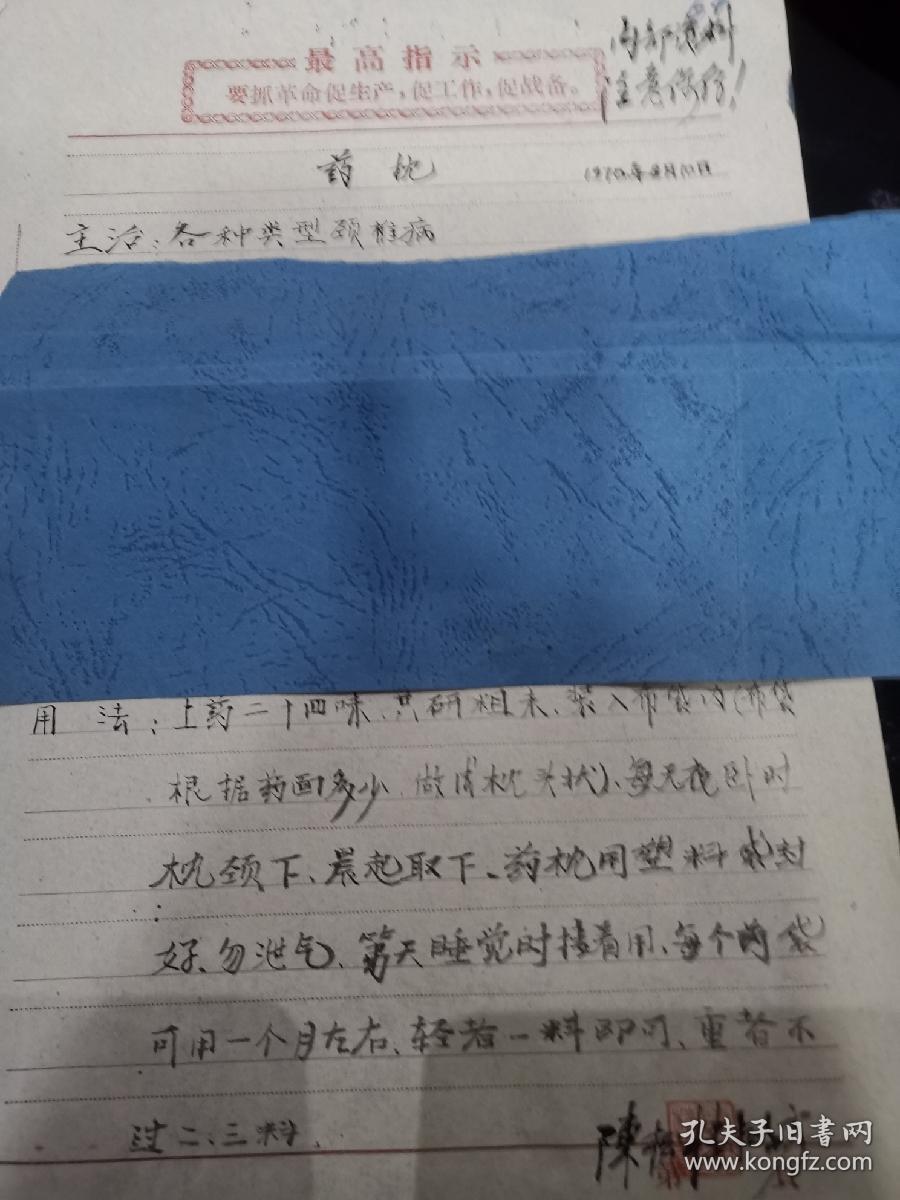 最高指示
要抓革命促生产，促工作，促战备。
内部资料
注意保存！
药枕
1970年8月10日
主治：各种类型颈椎病
用法：上药二十四味、共研粗末、装入布袋内（布袋
根据药面多少 做成枕头状）、每天夜卧时
枕颈下、晨起取下、药枕用塑料袋封
好、勿泄气、第天睡觉时接着用、每个药袋
可用一个月左右、轻者一料即可、重者不
过二、三料.
陳
孔夫子旧书网
www.kongfz.com